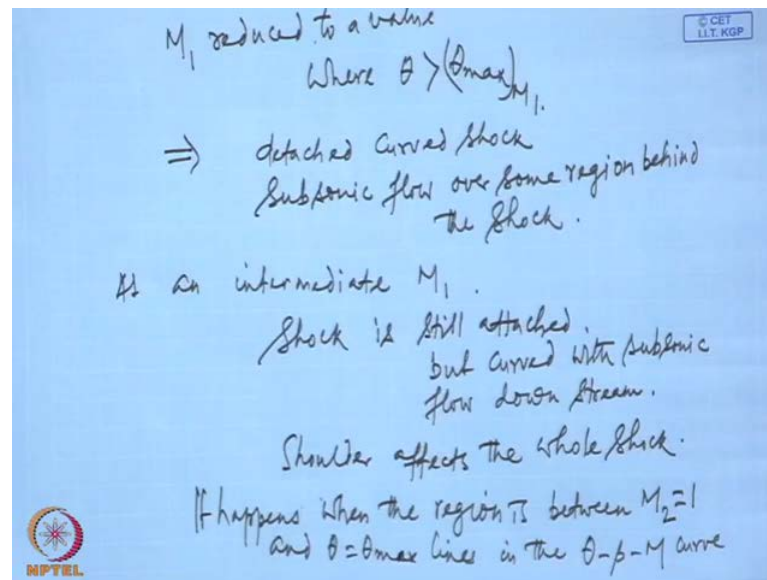 M₁ reduced to a value
© CET
I.I.T. KGP
where θ > (θmax)M₁.
⇒ detached curved shock
Subsonic flow over some region behind
the shock.
At an intermediate M₁.
Shock is still attached.
but curved with subsonic
flow down stream.
Shoulder affects the whole shock.
It happens when the region is between M₂=1
and θ=θmax lines in the θ-β-M curve
NPTEL